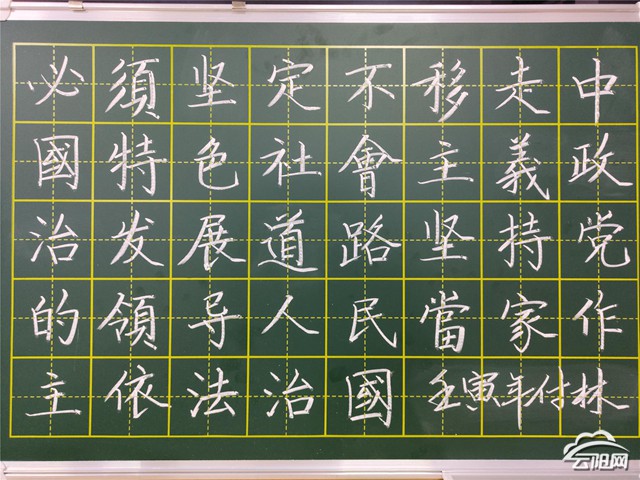 必須坚定不移走中
國特色社會主義政
治发展道路坚持党
的領导人民當家作
主依法治國 壬寅年付林
云阳网